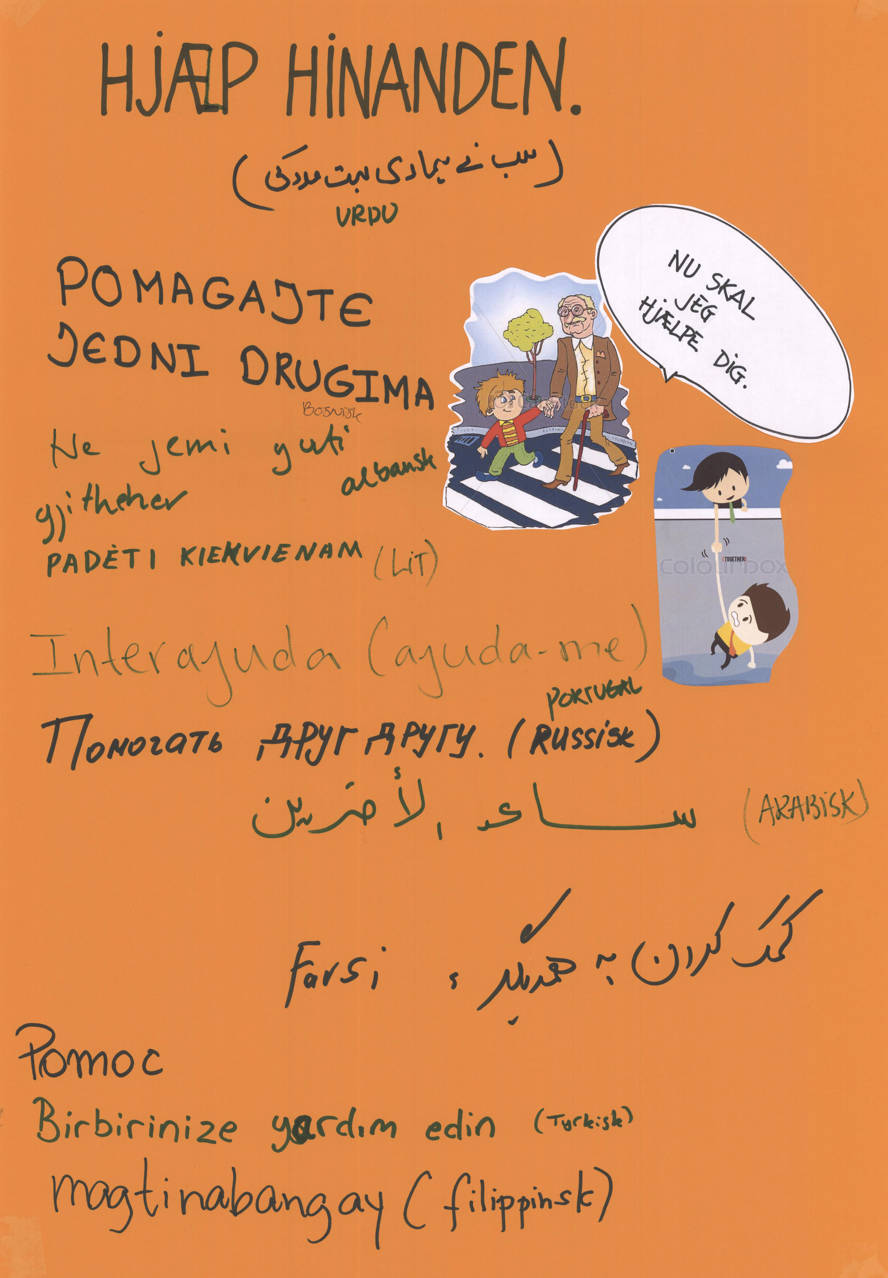 HJÆLP HINANDEN.
(سب نے ہماری بہت مدد کی)
URDU
NU SKAL
JEG
HJÆLPE DIG.
POMAGAJTE
JEDNI DRUGIMA
BOSNISK
Ne jemi yuti
gjitheher
albansk
PADĖTI KIEKVIENAM (LIT)
TOGETHER
colourbox
Interajuda (ajuda-me)
PORTUGAL
Помогать друг другу. (RUSSISK)
ساعد الأخرين (ARABISK)
کمک کردن به همدیگر , Farsi
Pomoc
Birbirinize yardım edin (Tyrkisk)
magtinabangay (filippinsk)